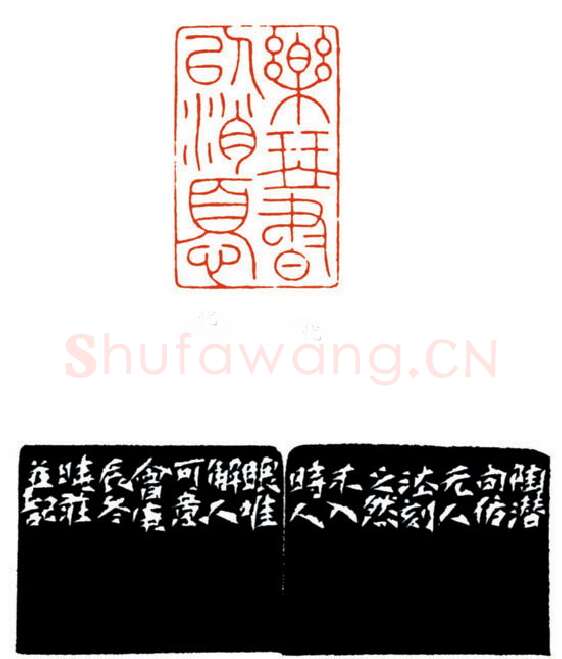 樂琴書
以消憂
陶潛
句仿
元人
法刻
之然
未入
時人
眼唯
解人
可意
會庚
辰冬
莊
並記
Shufawang.CN